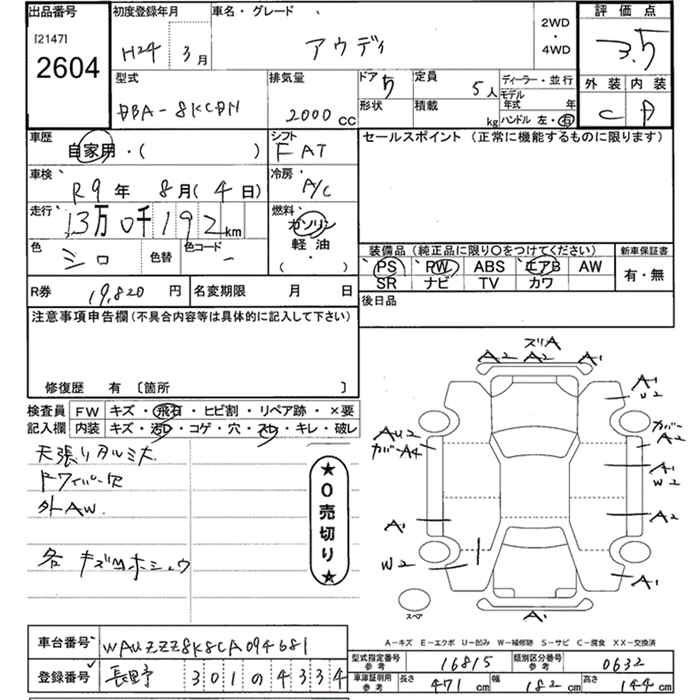 出品番号
[2147]
2604
初度登録年月
H24 3月
車名・グレード
アウディ
2WD
・
4WD
評価点
3.5
外装 内装
C A
型式
DBA-8KCDN
排気量
2000 CC
ドア 5
形状
定員 5人
積載 kg
ディーラー・並行
モデル年式 年
ハンドル 左・右
車歴
自家用・( )
シフト
FAT
車検
R9年 8月(4日)
冷房
A/C
走行
13万0千192km
燃料
ガソリン
軽油
( )
色 シロ
色替
色コード -
セールスポイント (正常に機能するものに限ります)
装備品 (純正品に限り○をつけてください)
PS PW ABS エアB AW
SR ナビ TV カワ
新車保証書
有・無
R券 19,820円
名変期限 月 日
後日品
注意事項申告欄(不具合内容等は具体的に記入して下さい)
修復歴 有 [箇所 ]
検査員記入欄
FW キズ・飛石・ヒビ割・リペア跡・×要
内装 キズ・汚レ・コゲ・穴・スレ・キレ・破レ
天張リタルミ大
ドワイパー欠
外AW.
各 キズ凹ホシュウ
★0売切り★
ズリA
A2 A2 A1
A1
U2
カバーA2
AU2
カバーA4
A1
W2
A1
A2
W2
A1
A1
スペア
A-キズ E-エクボ U-凹み W-補修跡 S-サビ C-腐食 XX-交換済
車台番号 WAUZZZ8K8CA094681
登録番号 長野 301 の 4334
型式指定番号参考 16815
類別区分番号参考 0632
車庫証明用参考 長さ 471cm 幅 182cm 高さ 144cm